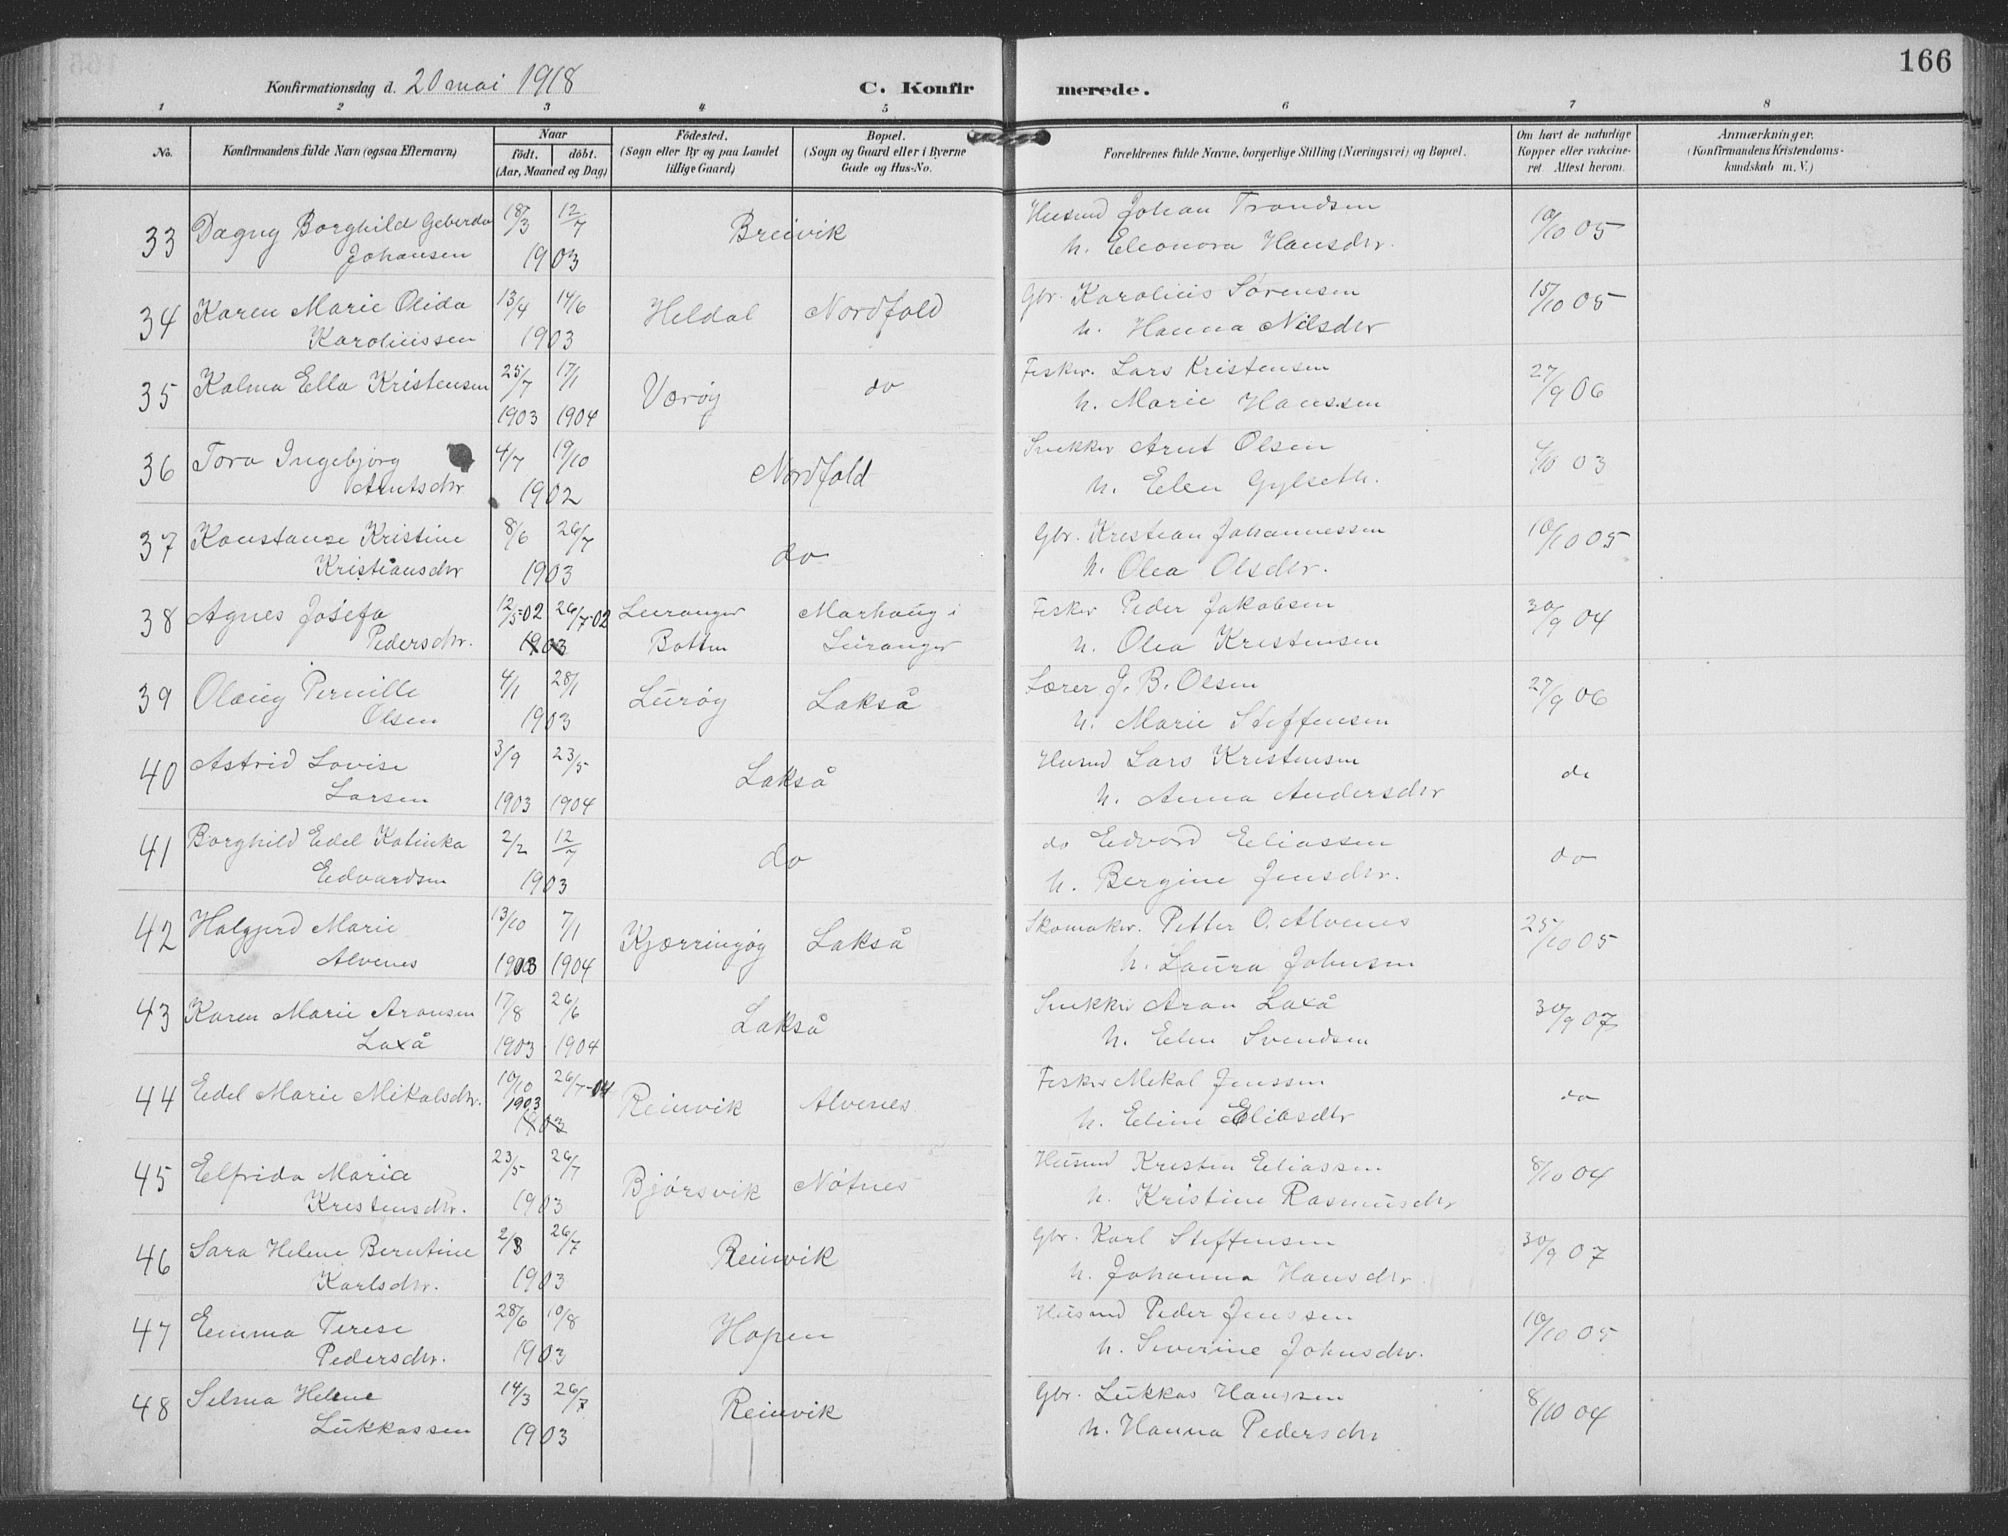 166
Konfirmationsdag d. 20 mai 1918
C. Konfirmerede.
1 2 3 4 5 6 7 8
No.
Konfirmandens fulde Navn (ogsaa Efternavn)
Naar
født. døbt.
(Aar, Maaned og Dag)
Fødested.
(Sogn eller By og paa Landet
tillige Gaard)
Bopæl.
(Sogn og Gaard eller i Byerne
Gade og Hus-No.
Forældrenes fulde Navne, borgerlige Stilling (Næringsvei) og Bopæl.
Om havt de naturlige
Kopper eller vakcine-
ret. Attest herom.
Anmærkninger.
(Konfirmandens Kristendoms-
kundskab m. V.)
33 Dagny Borghild Geberda 18/3 12/7 Breivik Husmd Johan Trondsen 10/10 05
Johansen 1903 h. Eleonora Hansdtr.
34 Karen Marie Olida 13/4 14/6 Heldal Nordfold Gbr. Karolius Sørensen 15/10 05
Karoliussen 1903 h. Hanna Nilsdtr
35 Kalma Ella Kristensen 25/7 17/1 Værøy do Fisker. Lars Kristensen 27/9 06
1903 1904 h. Marie Hanssen
36 Tora Ingebjørg 4/7 19/10 Nordfold Snekker Arnt Olsen 03
Arntsdtr 1902 h. Elen Gylseth.
37 Konstanse Kristine 8/6 26/7 do Gbr. Kristian Johannessen 10/10 05
Kristiansdtr 1903 h. Olea Olsdtr.
38 Agnes Josefa 12/5-02 26/7-02 Leiranger Marhaug i Fisker Peder Jakobsen 30/9 04
Pedersdtr. 1903 Botten Leiranger h. Olea Kristensen
39 Olaug Pernille 4/1 28/1 Lurøy Lakså Lærer J. B. Olsen 27/9 06
Olsen 1903 h. Marie Steffensen
40 Astrid Lovise 3/9 23/5 Lakså Husmd Lars Kristensen do
Larsen 1903 1904 h. Anna Andersdtr
41 Borghild Edel Katinka 2/2 12/7 do do Edvard Eliassen do
Edvardsen 1903 h. Bergine Jensdtr.
42 Halgjerd Marie 13/10 7/1 Kjærringøy Lakså Skomaker. Petter O. Alvenes 25/10 05
Alvenes 1903 1904 h. Laura Johnsen
43 Karen Marie Aronsen 17/8 26/6 Lakså Snekker Aron Laxå 30/9 07
Laxå 1903 1904 h. Elen Svendsen
44 Edel Marie Mikalsdtr. 10/10 1903 26/7-04 Reinvik Alvenes Fisker Mikal Jenssen do
1903 h. Eline Eliasdtr
45 Elfrida Maria 23/5 26/7 Bjørsvik Nøtnes Husmd Kristen Eliassen 8/10 04
Kristensdtr. 1903 h. Kristine Rasmusdtr
46 Sara Helene Berntine 2/3 26/7 Reinvik Gbr. Karl Steffensen 30/9 07
Karlsdtr. 1903 h. Johanna Hansdtr.
47 Emma Terese 28/6 10/8 Hopen Husmd Peder Jenssen 10/10 05
Pedersdtr. 1903 h. Severine Johnsdtr.
48 Selma Helene 14/3 26/7 Reinvik Gbr. Lukkas Hanssen 8/10 04
Lukkassen 1903 h. Hanna Pedersdtr